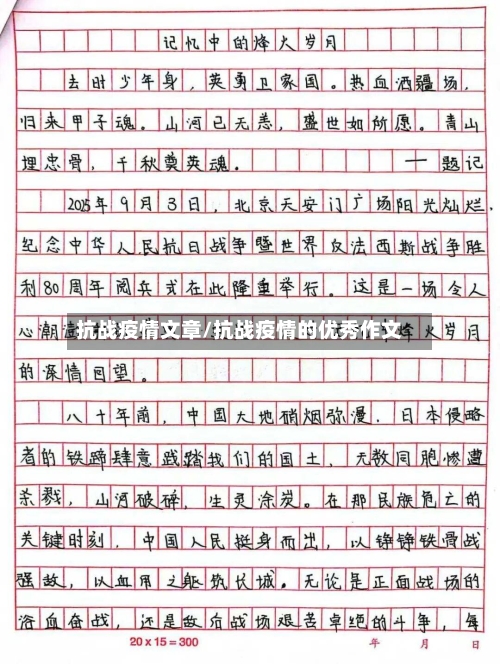 记忆中的烽火岁月
去时少年身，英勇卫家国。热血洒疆场，
归来甲子魂。山河已无恙，盛世如所愿。青山
埋忠骨，千秋奠英魂。 — 题记
2025年9月3日，北京天安门广场阳光灿烂，
纪念中华人民抗日战争暨世界反法西斯战争胜
利80周年阅兵式在此隆重举行。这是一场令人
心潮
抗战疫情文章/抗战疫情的优秀作文
火岁月
的深情回望。
八十年前，中国大地硝烟弥漫，日本侵略
者的铁蹄肆意践踏我们的国土，无数同胞惨遭
杀戮，山河破碎，生灵涂炭。在那民族危亡的
关键时刻，中国人民挺身而出，以铮铮铁骨战
强敌，以血肉之躯筑长城。无论是正面战场的
浴血奋战，还是敌后战场艰苦卓绝的斗争，每
20 x 15 = 300 年 月 日